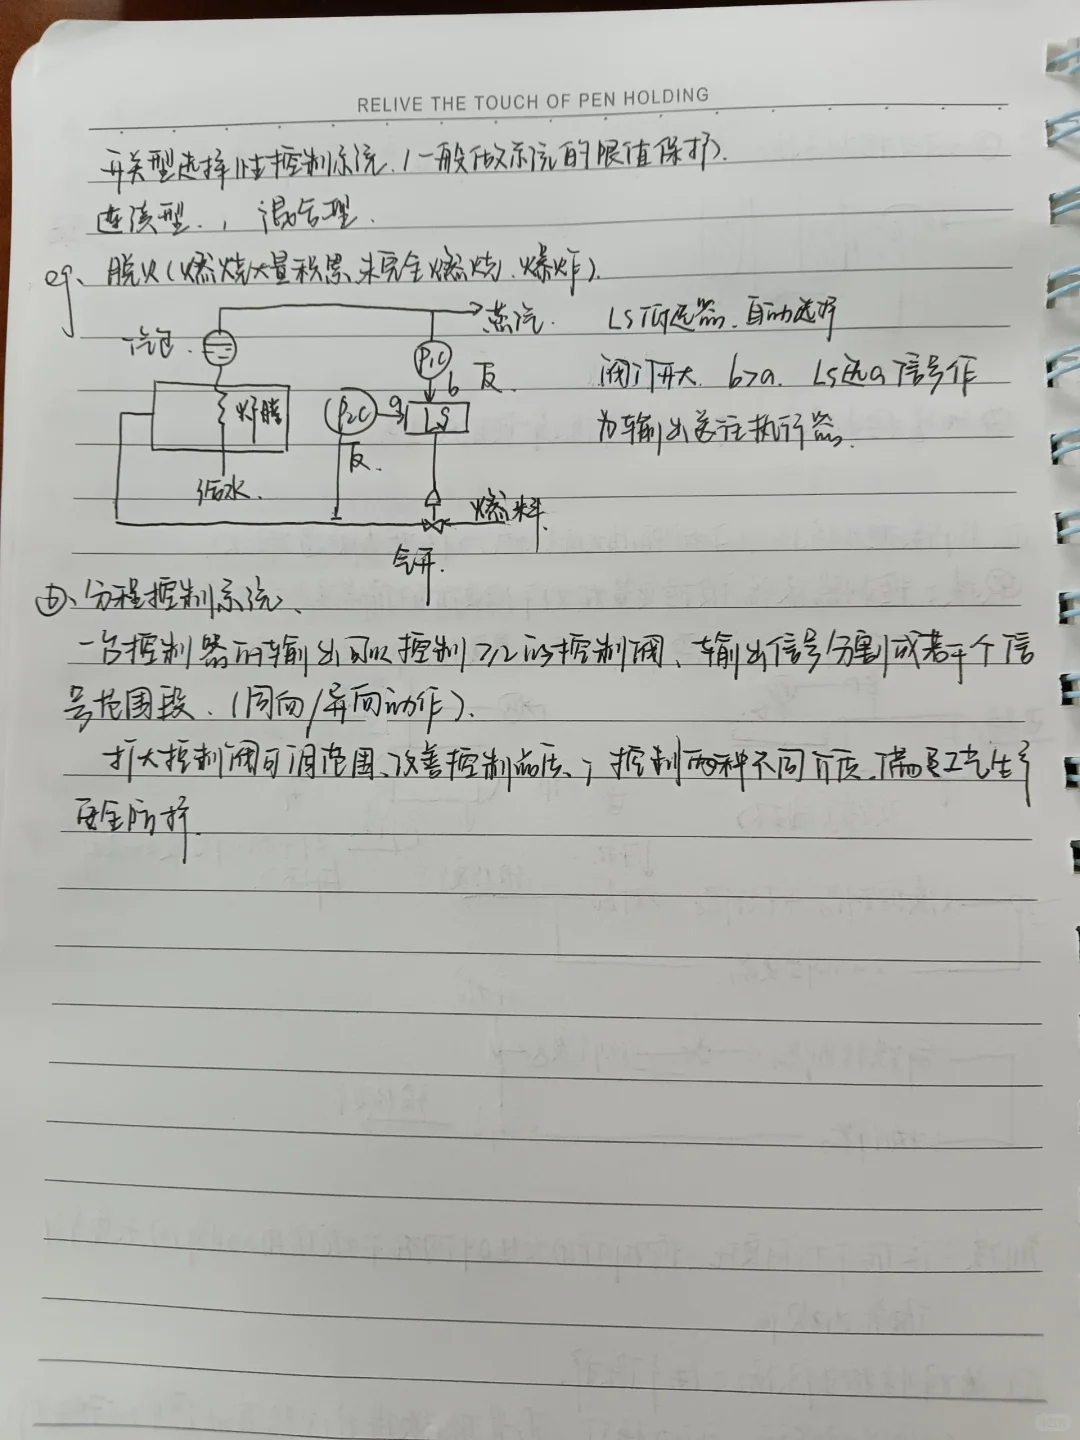 RELIVE THE TOUCH OF PEN HOLDING
开关型选择性控制系统.(一般做系统的限值保护).
连续型., 混合型.
eg、脱火(燃烧大量积累、未完全燃烧、爆炸).
蒸汽. LS低选器、自动选择
汽包
P1C
b 反. 阀门开大. b>a. LS选a信号作
炉膛 P2C a LS
为输出送往执行器.
反.
给水.
燃料.
气开.
分程控制系统、
一台控制器的输出可以控制≥2的控制阀、输出信号分割成若干个信
号范围段.(同向/异向动作).
扩大控制阀可调范围、改善控制品质、; 控制两种不同介质、满足工艺生产
安全防护.